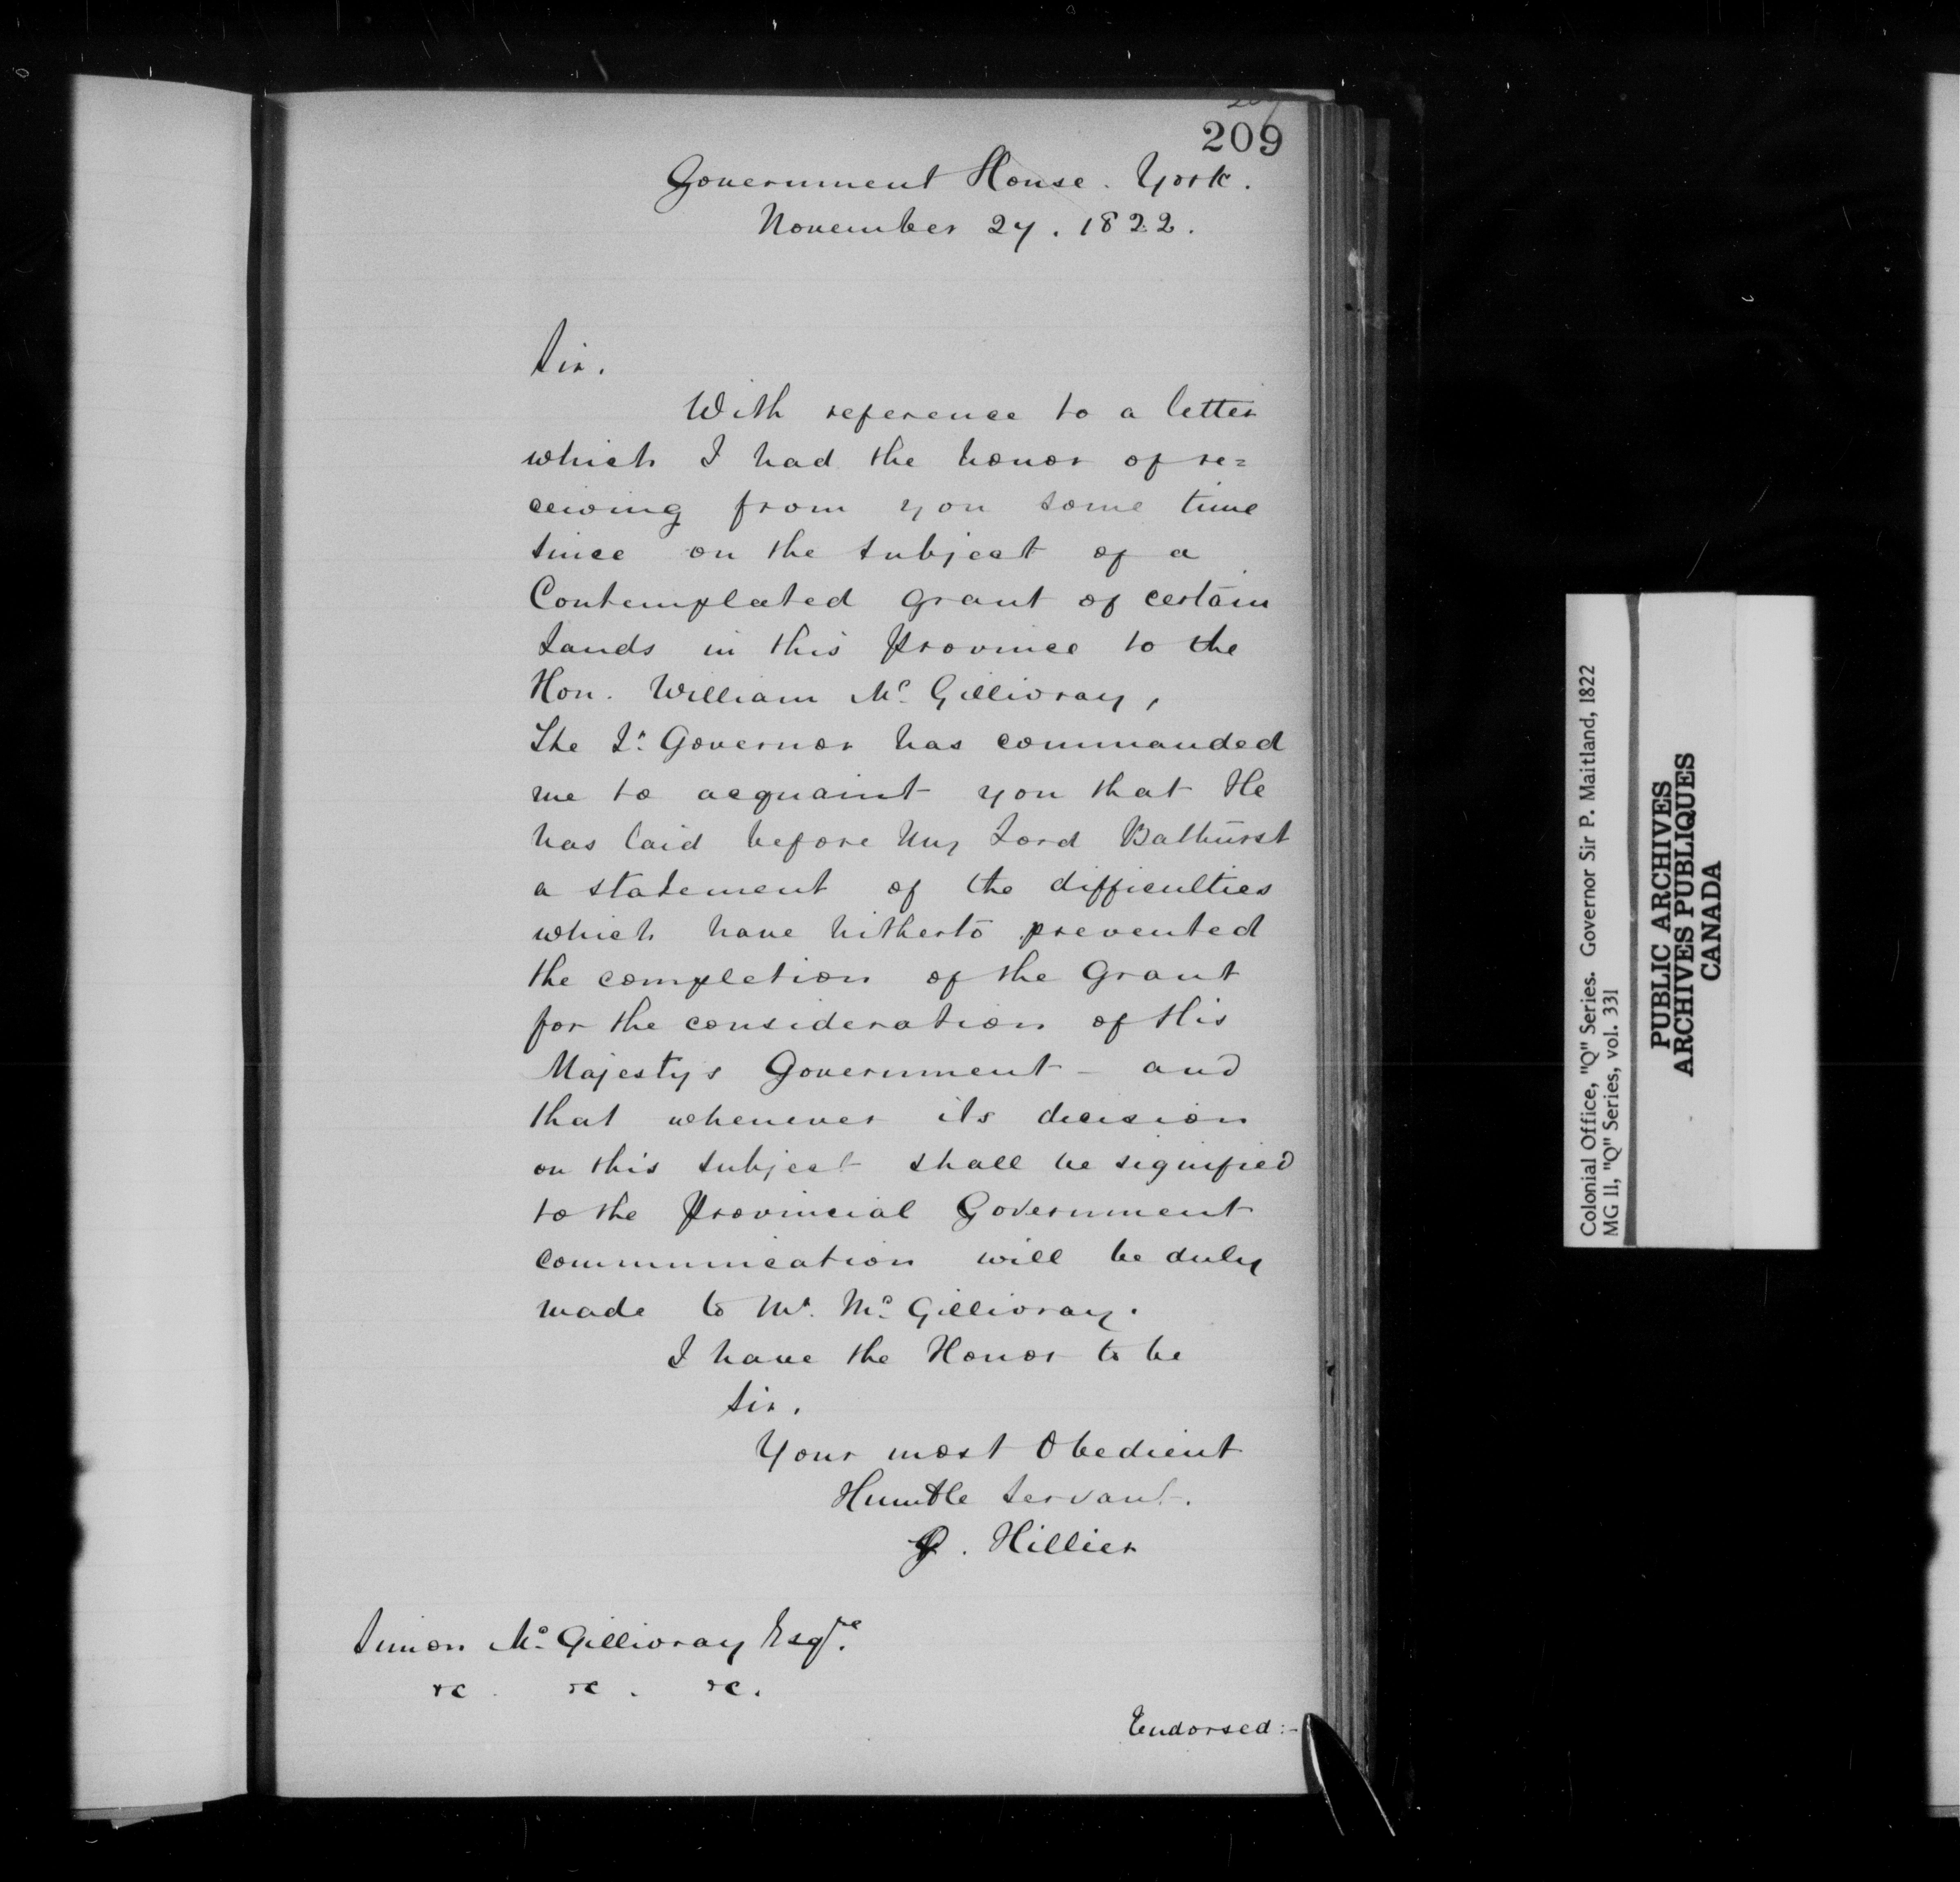 209
Government House. York.
November 27. 1822.
Sir.
With reference to a letter
which I had the honor of re=
ceiving from you some time
since on the subject of a
Contemplated grant of certain
Lands in this Province to the
Hon. William Mc. Gillivray,
The Lt. Governor has commanded
me to acquaint you that He
has laid before my Lord Bathurst
a statement of the difficulties
which have hitherto prevented
the completion of the Grant
for the consideration of His
Majesty's Government - and
that whenever its decision
on this subject shall be signified
to the Provincial Government
communication will be duly
made to Mr. Mc. Gillivray.
I have the Honor to be
Sir.
Your most Obedient
Humble Servant.
G. Hillier
Simon Mc. Gillivray Esqre.
&c. &c. &c.
Endorsed:-
Colonial Office, "Q" Series. Governor Sir P. Maitland, 1822
MG 11, "Q" Series, vol. 331
PUBLIC ARCHIVES
ARCHIVES PUBLIQUES
CANADA